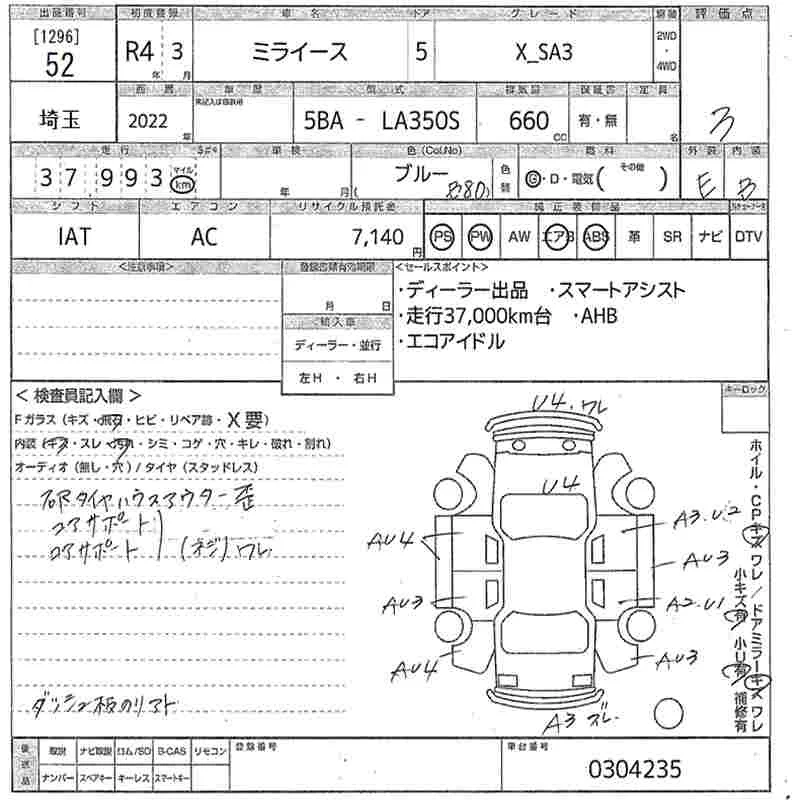 出品番号 初度登録 車名 ドア グレード 駆動 評価点
[1296]
52
R4年 3月 ミライース 5 X_SA3 2WD・4WD
埼玉
西暦 車歴 型式 排気量 保証書 定員
2022年 未記入は自家用 5BA - LA350S 660CC 有・無 名
3
走行 車検 色(Col.No) 燃料 外装 内装
37,993 マイル km 年 月 ブルー 色替 G・D・電気( その他 ) E B
シフト エアコン リサイクル預託金 純正装備品
IAT AC 7,140円 PS PW AW エアB ABS 革 SR ナビ DTV
<注意事項> 登録書類有効期限 <セールスポイント>
月 日
・ディーラー出品 ・スマートアシスト
・走行37,000km台 ・AHB
・エコアイドル
<輸入車
ディーラー・並行
左H ・ 右H
< 検査員記入欄 >
キーロック
Fガラス(キズ・飛石・ヒビ・リペア跡・X要)
内装(キズ・スレ・汚れ・シミ・コゲ・穴・キレ・破れ・割れ)
オーディオ(無し・穴)/タイヤ(スタッドレス)
右Rタイヤハウスアウター歪
コアサポート
コアサポート (ネジ)ワレ
ダッシュ板のリフト
U4.ワレ
U4
A3.U2
AU4
AU3
AU3
A2.U1
AU4
AU3
A3 ズレ
ホイル・CPキズワレ/ドアミラーキズワレ
小キズ有 小U有 補修有
後送品 取説 ナビ取説 ロム/SD B-CAS リモコン 登録番号 車台番号
ナンバー スペアキー キーレス スマートキー
0304235